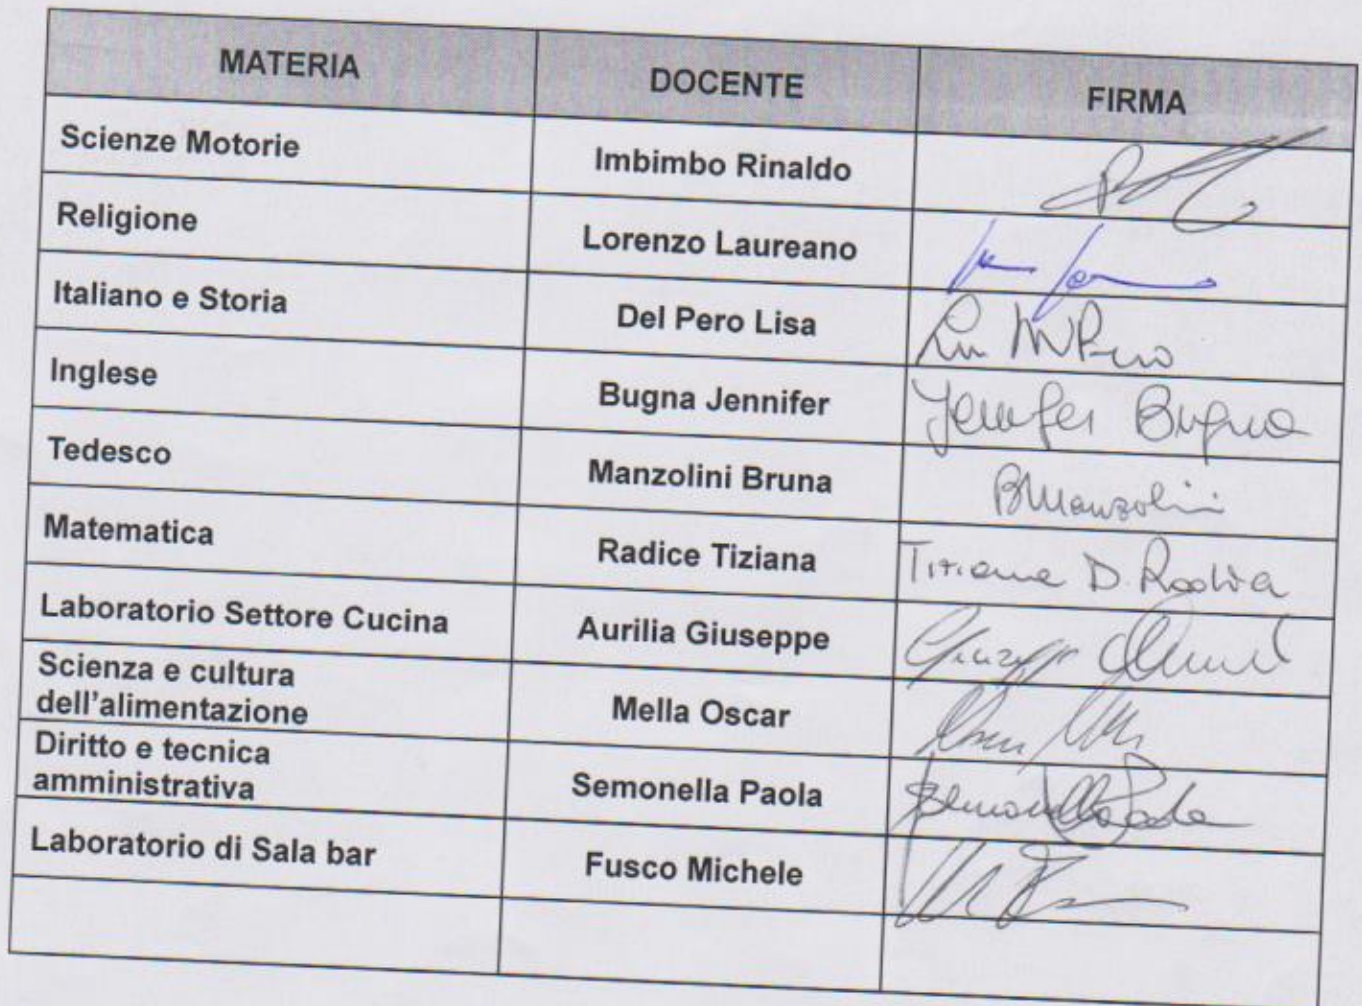 MATERIA DOCENTE FIRMA
Scienze Motorie Imbimbo Rinaldo
Religione Lorenzo Laureano
Italiano e Storia Del Pero Lisa
Inglese Bugna Jennifer Jennifer Bugna
Tedesco Manzolini Bruna BManzolini
Matematica Radice Tiziana Tiziana D. Radice
Laboratorio Settore Cucina Aurilia Giuseppe
Scienza e cultura
dell'alimentazione Mella Oscar
Diritto e tecnica
amministrativa Semonella Paola Semonella Paola
Laboratorio di Sala bar Fusco Michele